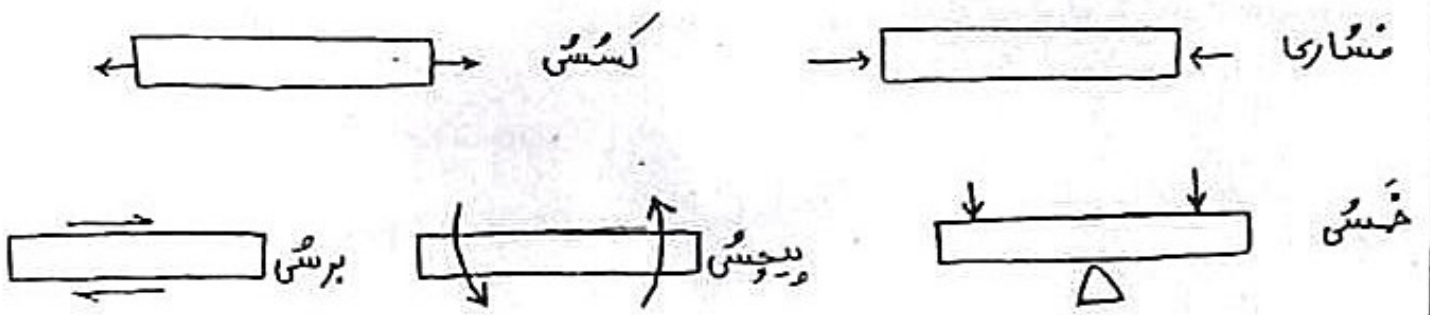 فشاری کششی
خمشی پیچشی برشی